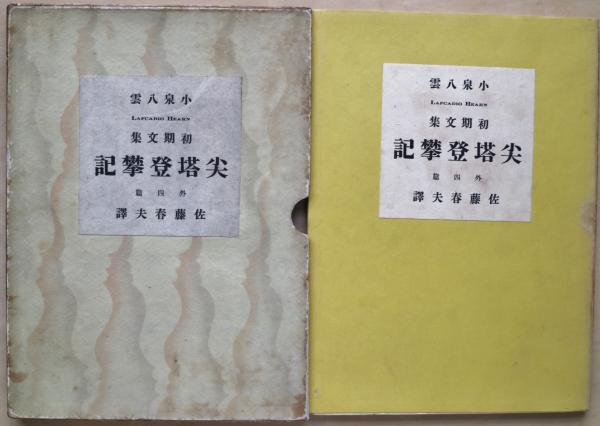 小泉八雲
LAFCADIO HEARN
初期文集
尖塔登攀記
外四篇
佐藤春夫譯
小泉八雲
LAFCADIO HEARN
初期文集
尖塔登攀記
外四篇
佐藤春夫譯